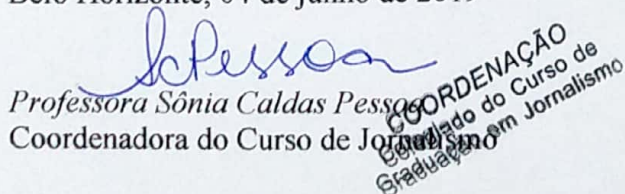 Belo Horizonte, 04 de junho de
ScPessoa
Professora Sônia Caldas Pessoa
Coordenadora do Curso de Jornalismo
COORDENAÇÃO
Colegiado do Curso de
Graduação em Jornalismo